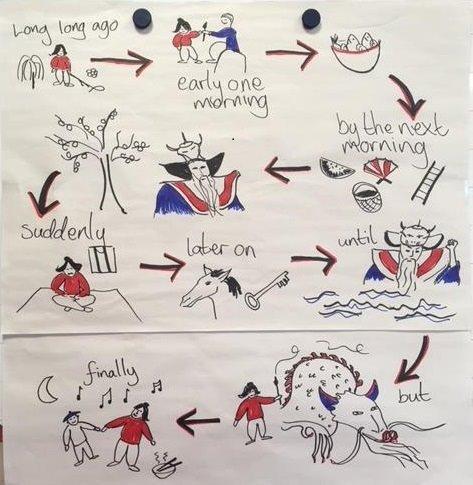 Long long ago
early one
morning
by the next
morning
Suddenly
later on
until
but
finally